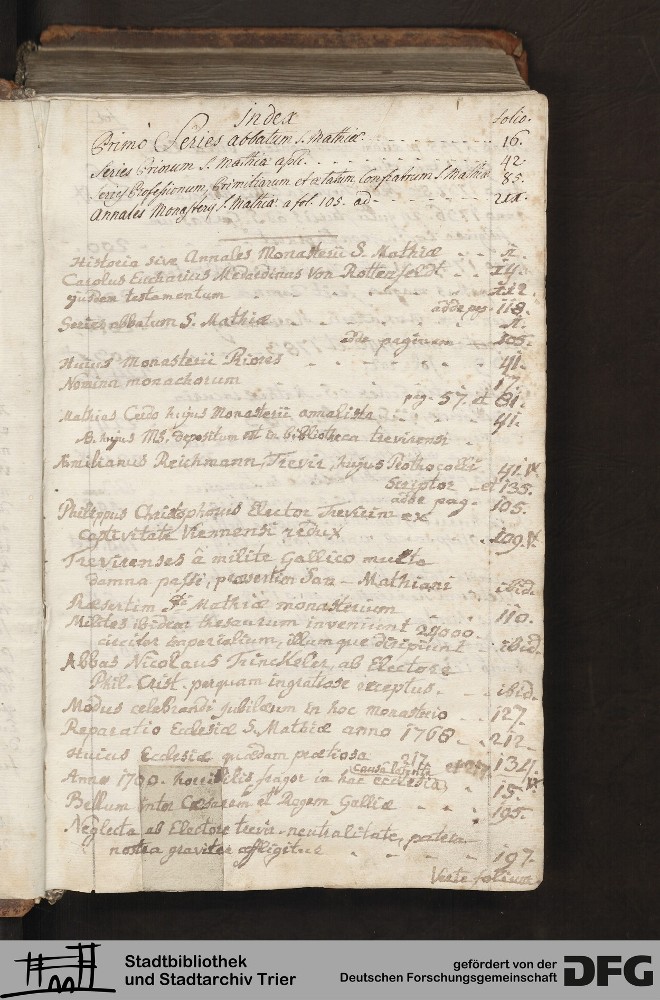 Index folio.
Primò Series abbatum S. Mathiæ. 16.
Series Priorum S. Mathiæ apli. 42
Series Professionum, Primitiarum et ætatum Confratrum S. Mathiæ 85.
Annales Monastery S. Mathiæ a fol. 105. ad
Historia sive Annales Monasterii S. Mathiæ 1.
Carolus Eucharius Medardinus Von Rottenfeldt 14.
ejusdem testamentum 112.
adde pag. 118.
Series abbatum S. Mathiæ 1.
adde paginam 105.
Huius Monasterii Priores 41.
Nomina monachorum 17.
pag. 57. et 81.
Mathias Ceido hujus Monasterii annalista 41.
hujus MS. depositum est in bibliotheca trevirensi
Æmilianus Reichmann, Trevir, hujus Prothocolli 41.
Scriptor et 135.
adde pag. 105.
Philippus Christophorus Elector Trevirim ex
captivitate Viennensi redux 109.
Trevirenses â milite Gallico multa
damna passi, præsertim San-Mathiani ibid.
Præsertim Sti Mathiæ monasterium 110.
Milites ibidem thesaurum inveniunt 29000.
circiter imperialium, illumque diripiunt ibid.
Abbas Nicolaus Trinckeler, ab Electore
Phil. Crist. perquam ingratiose exceptus. ibid.
Modus celebrandi jubilæum in hoc monasterio 127.
Reparatio Ecclesiæ S. Mathiæ anno 1768 212.
Huius Ecclesiæ quædam prætiosa 217 et 134.
Anno 1700. horribilis fragor in hac ecclesia 15.
Bellum inter Cæsarem et Regem Galliæ 195.
Neglecta ab Electore trevir. neutralitate, patria
nostra graviter affligitur 197.
Verte folium
Stadtbibliothek
und Stadtarchiv Trier
gefördert von der
Deutschen Forschungsgemeinschaft
DFG